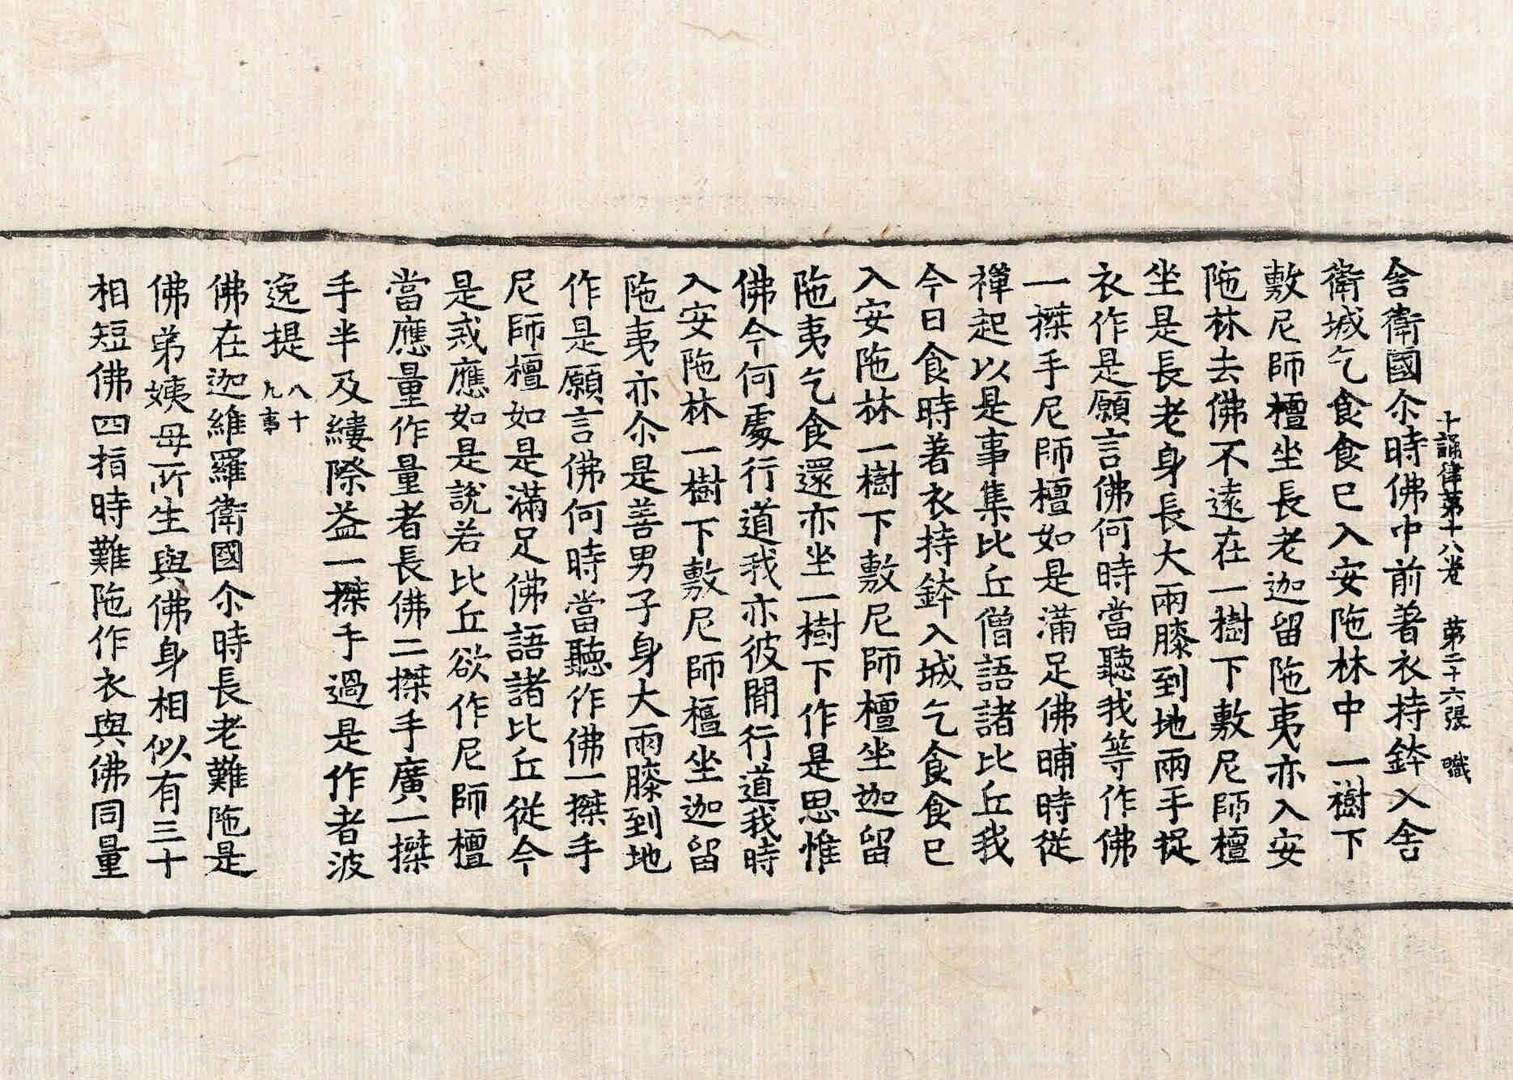 十誦律第十八卷 第二十六張 職
舍衛國尒時佛中前著衣持鉢入舍
衛城乞食食已入安陁林中一樹下
敷尼師檀坐長老迦留陁夷亦入安
陁林去佛不遠在一樹下敷尼師檀
坐是長老身長大兩膝到地兩手捉
衣作是願言佛何時當聽我等作佛
一搩手尼師檀如是滿足佛晡時從
禪起以是事集比丘僧語諸比丘我
今日食時著衣持鉢入城乞食食已
入安陁林一樹下敷尼師檀坐迦留
陁夷乞食還亦坐一樹下作是思惟
佛今何處行道我亦彼間行道我時
入安陁林一樹下敷尼師檀坐迦留
陁夷亦尒是善男子身大兩膝到地
作是願言佛何時當聽作佛一搩手
尼師檀如是滿足佛語諸比丘從今
是戒應如是說若比丘欲作尼師檀
當應量作量者長佛二搩手廣一搩
手半及縷際益一搩手過是作者波
逸提 八十九事
佛在迦維羅衛國尒時長老難陁是
佛弟姨母所生與佛身相似有三十
相短佛四指時難陁作衣與佛同量